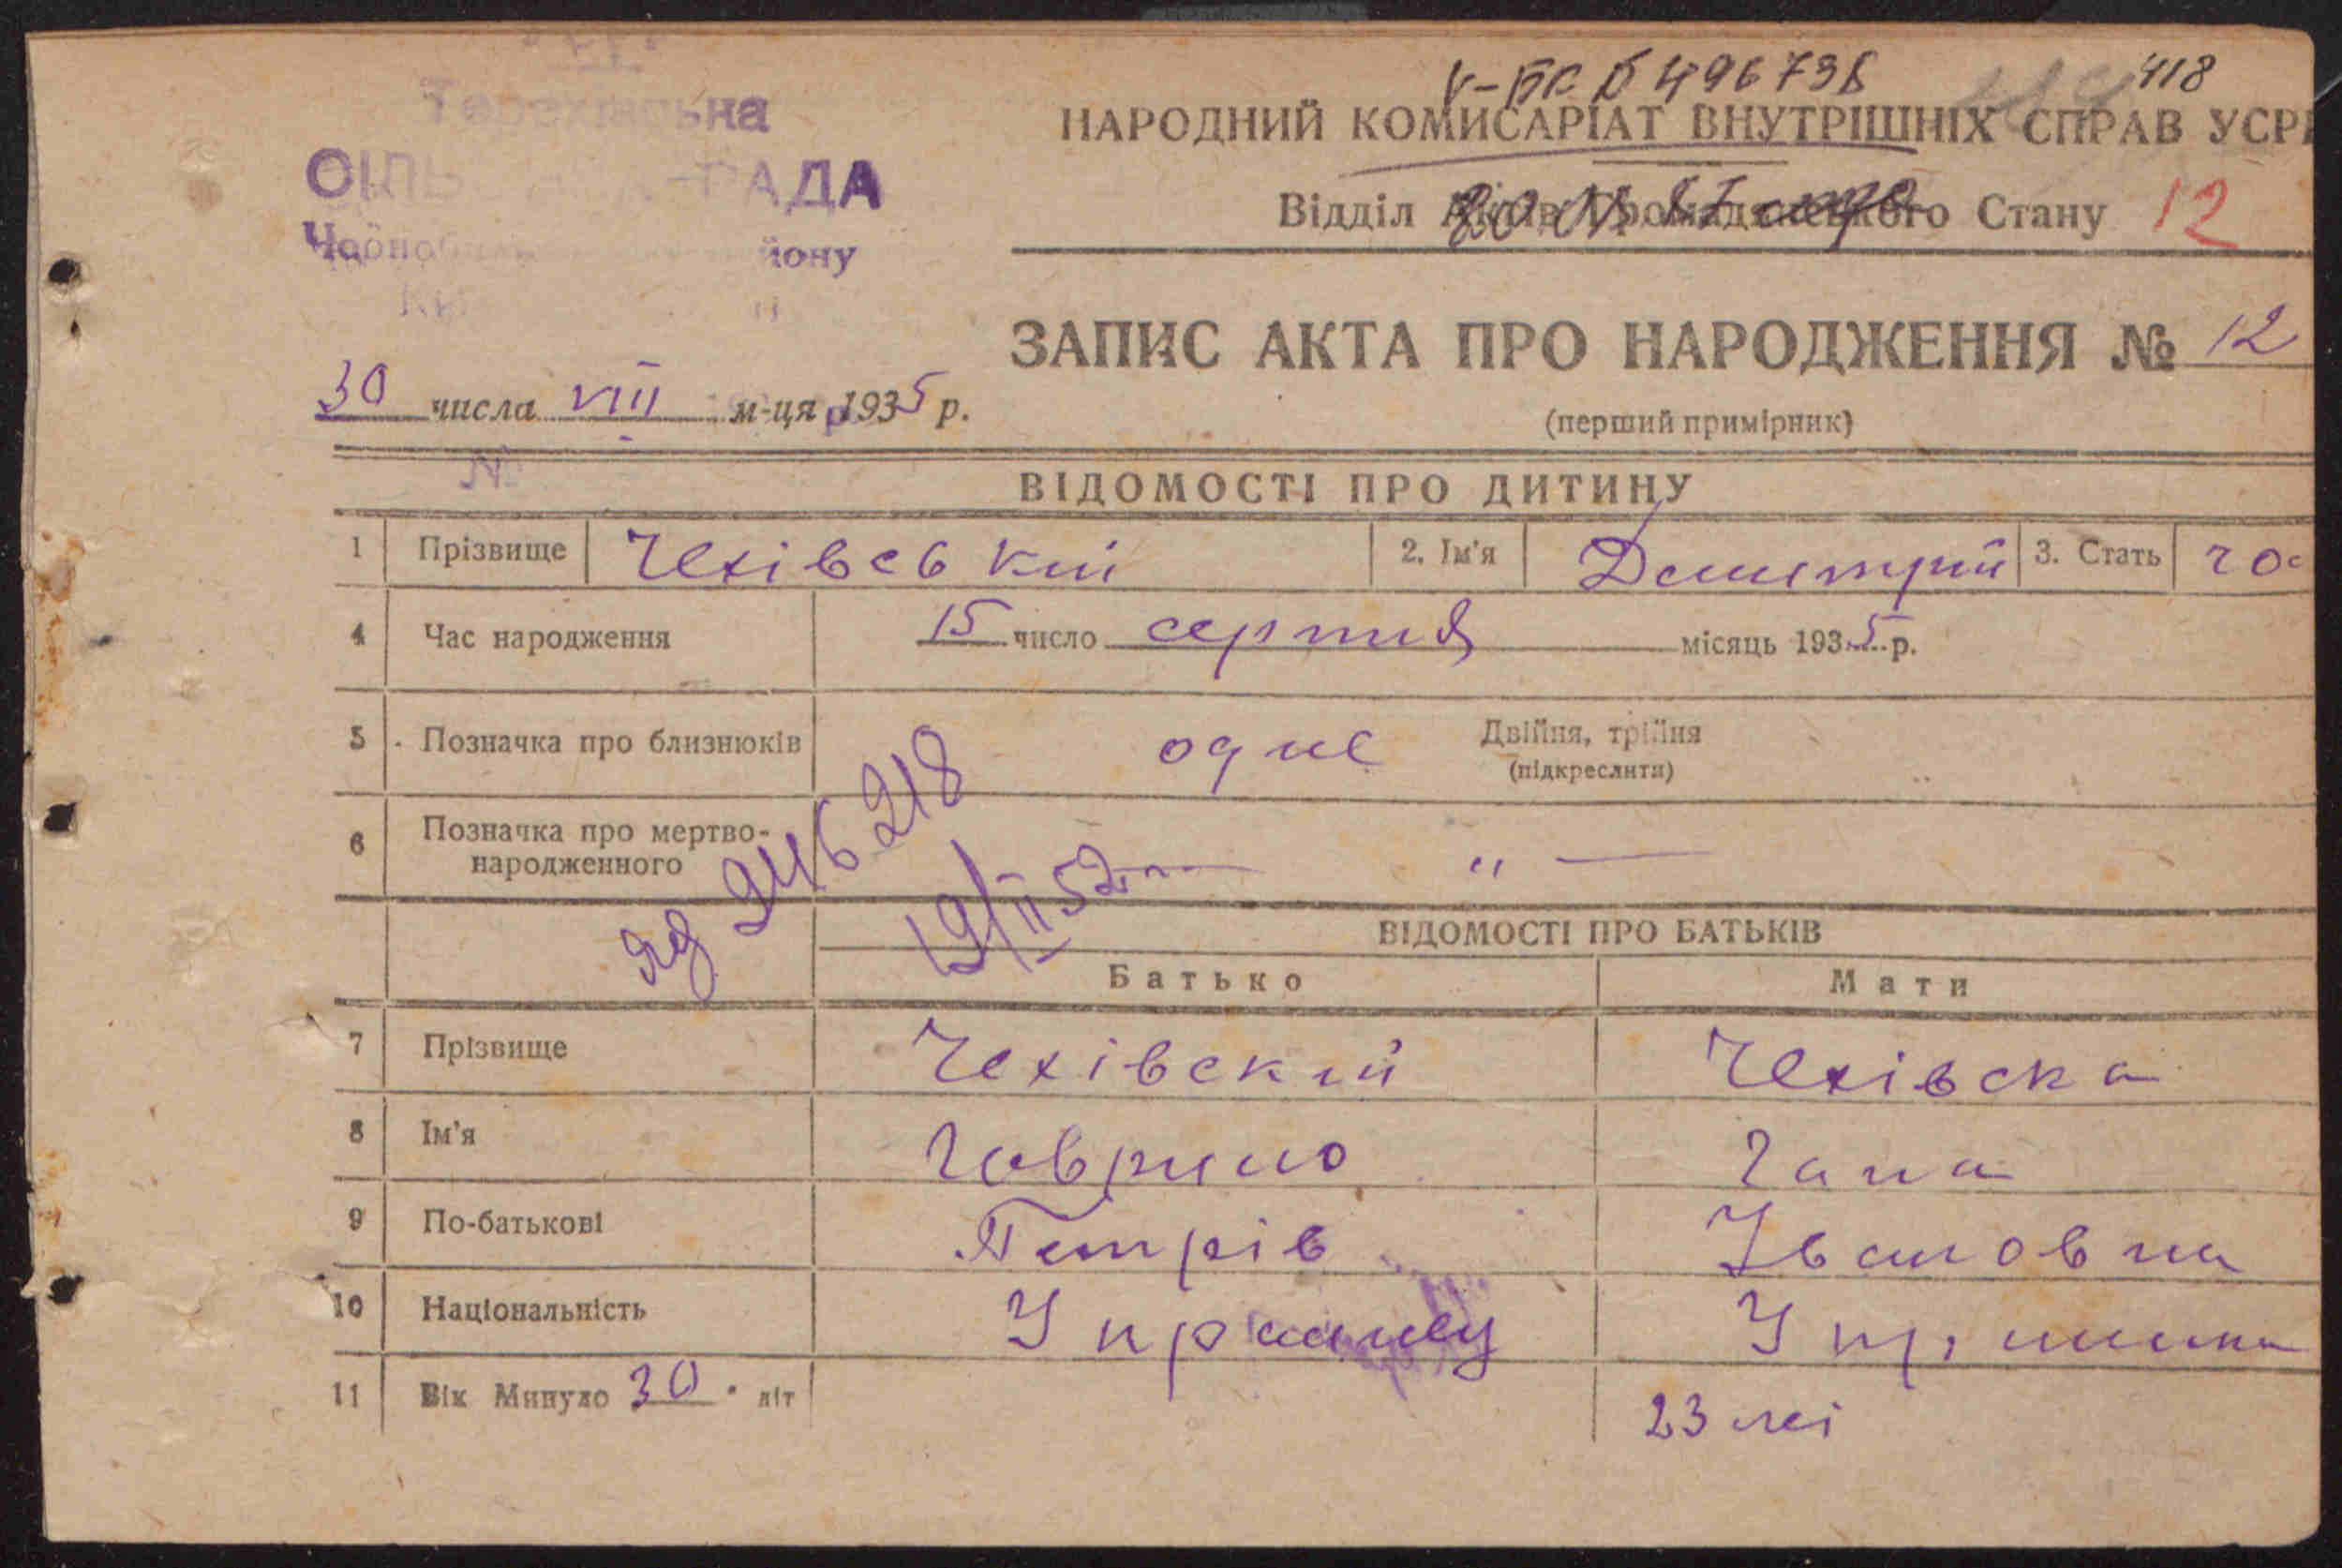 на
РАДА
йону
V-БК № 496736
418
НАРОДНИЙ КОМИСАРІАТ ВНУТРІШНІХ СПРАВ УСРР
Відділ Актів Громадянського Стану 12
ЗАПИС АКТА ПРО НАРОДЖЕННЯ № 12
(перший примірник)
30 числа VIII м-ця 1935 р.
№
ВІДОМОСТІ ПРО ДИТИНУ
1 Прізвище Чехівський 2. Ім'я Деметрій 3. Стать чо
4 Час народження 15 число серпня місяць 1935 р.
5 Позначка про близнюків одне Двійня, трійня
(підкреслити)
6 Позначка про мертво-
народженного " —
946218
19/II 52
ВІДОМОСТІ ПРО БАТЬКІВ
Батько Мати
7 Прізвище Чехівский Чехівска
8 Ім'я Гаврило Гана
9 По-батькові Петрів Івановна
10 Національність Украинец Украинка
11 Вік Минуло 30 літ 23 лі